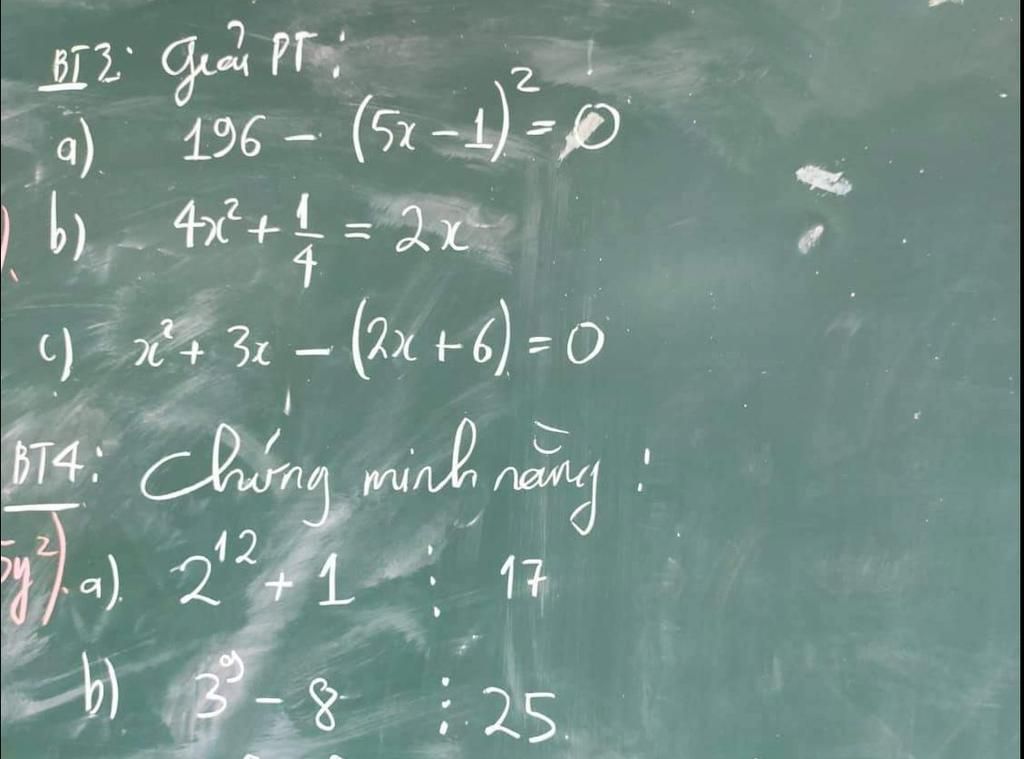 BT3: Giải PT:
a) 196 - (5x - 1)² = 0
b) 4x² + 1/4 = 2x
c) x² + 3x - (2x + 6) = 0
BT4: Chứng minh rằng:
y²). a). 2¹² + 1 ⋮ 17
b) 3⁹ - 8 ⋮ 25.